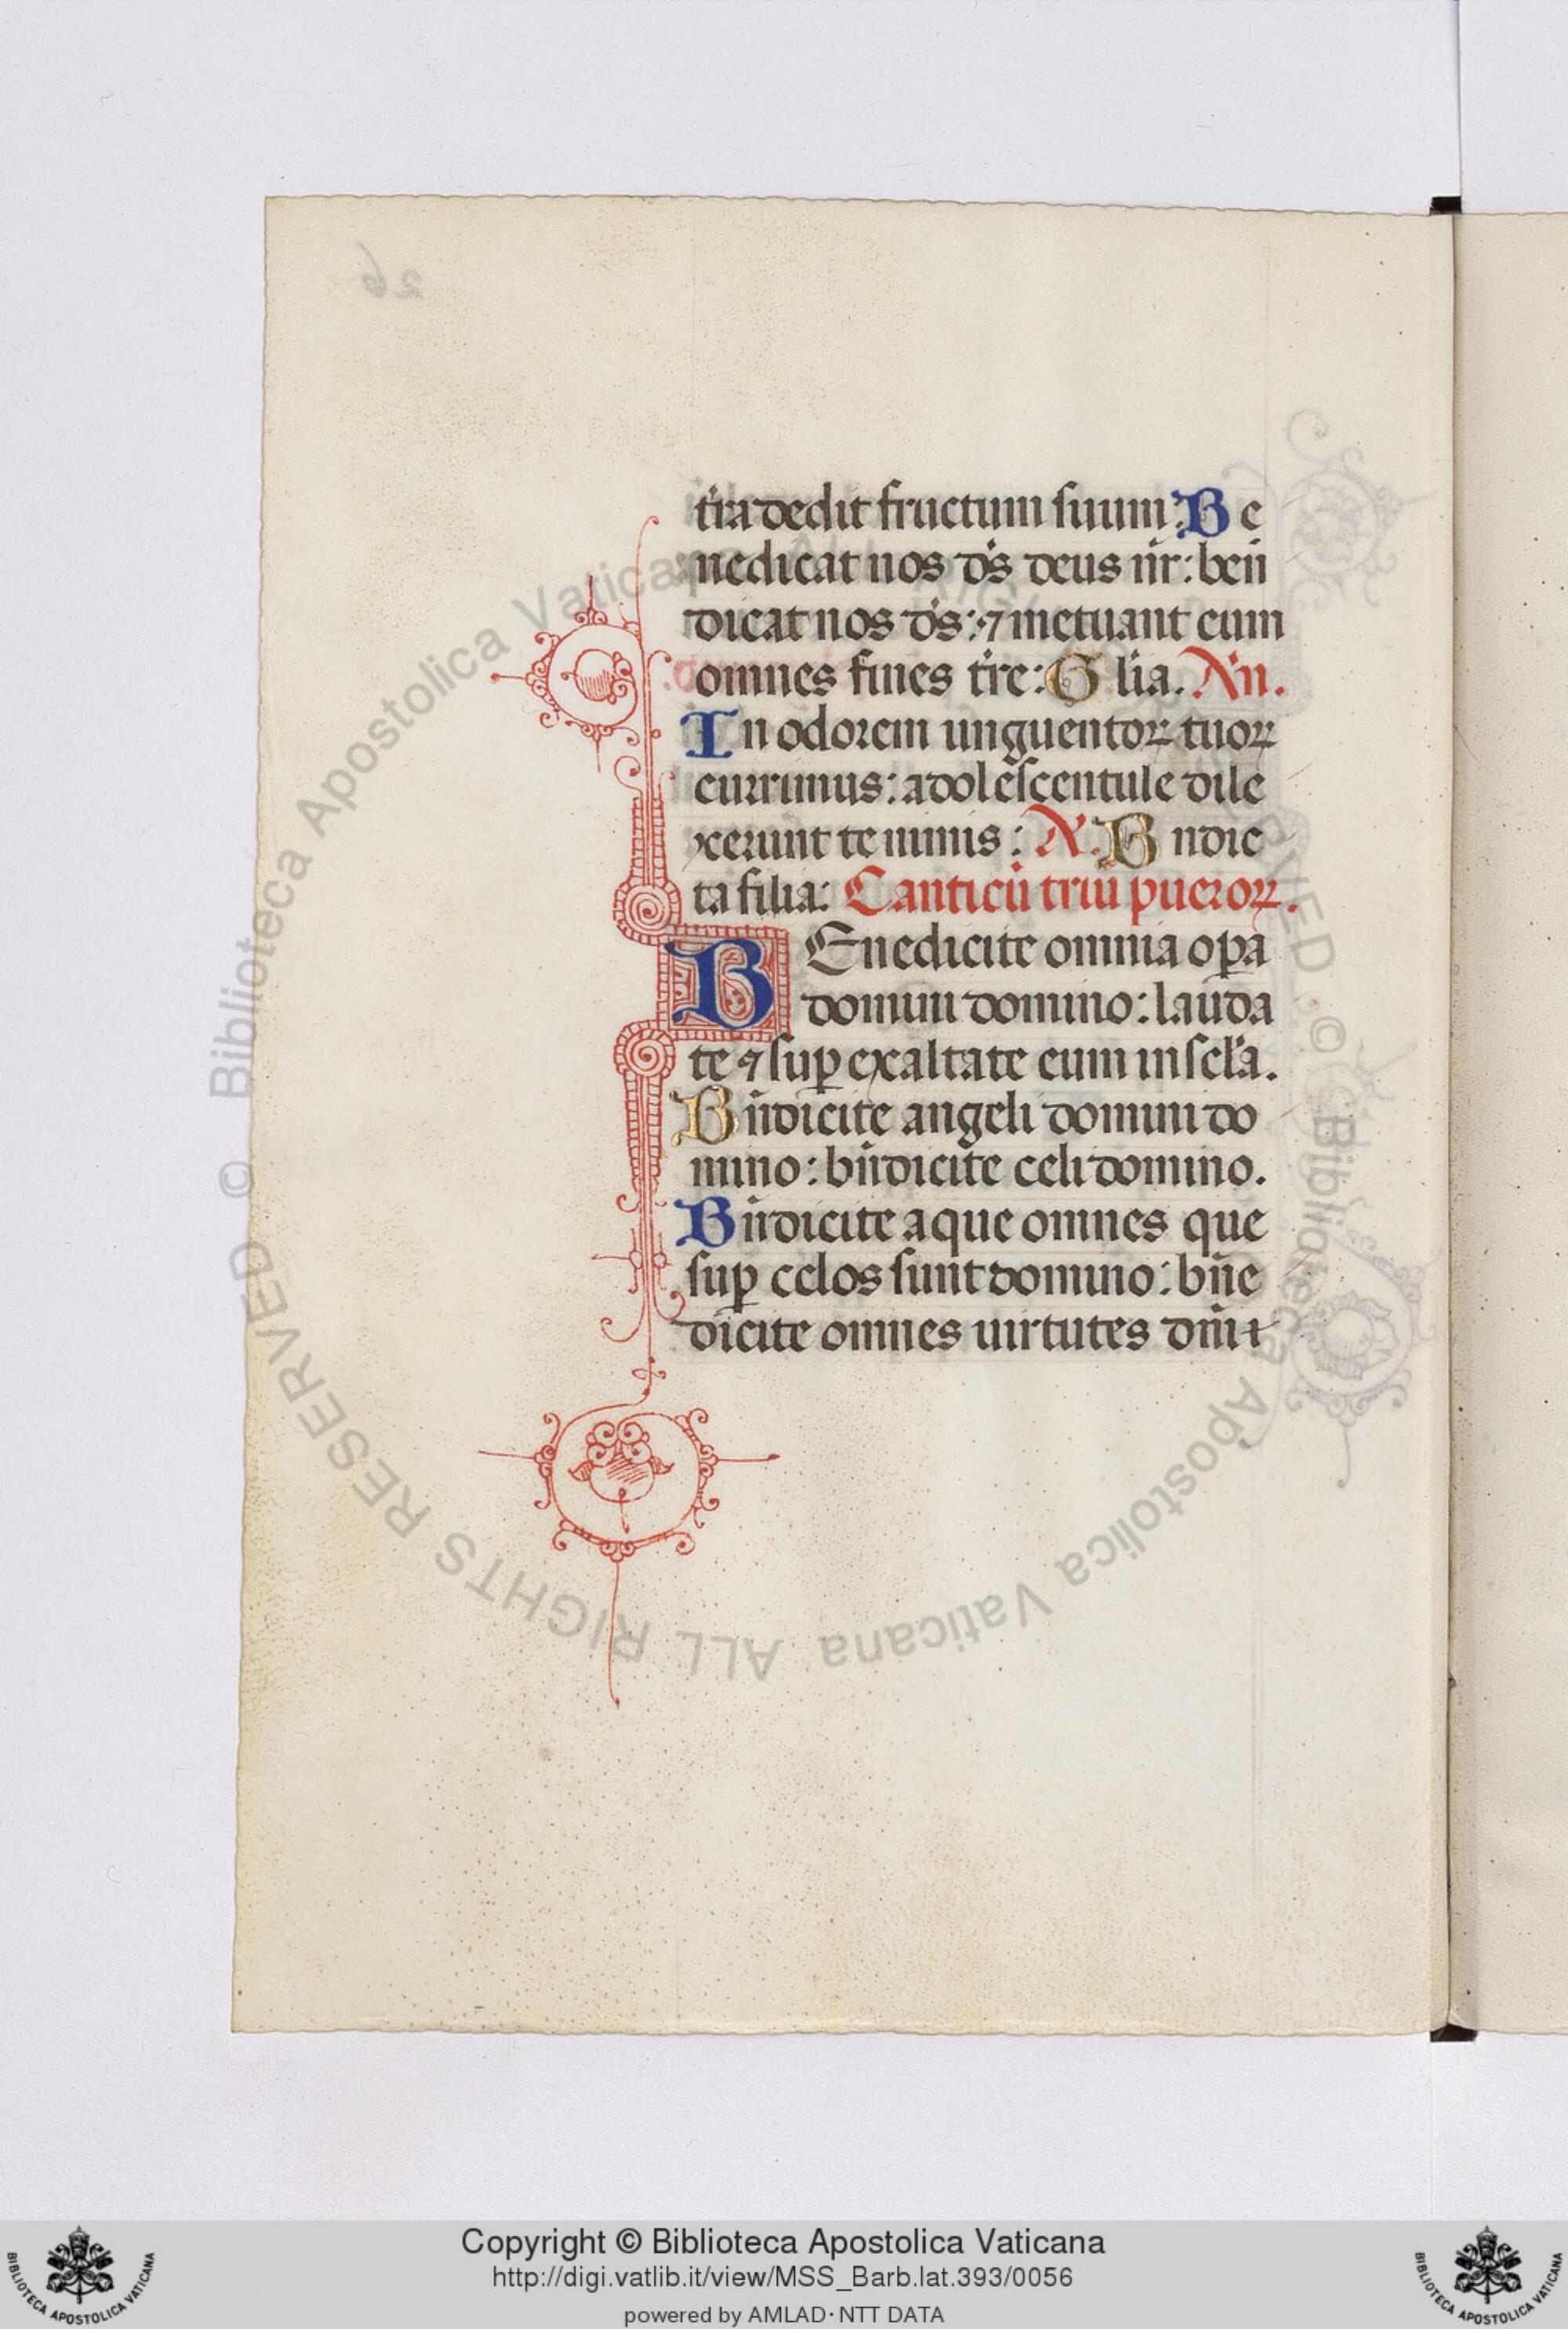 t̄ra dedit fructum suum: Be
nedicat nos d̄s deus n̄r: ben̄
dicat nos d̄s: ⁊ metuant eum
omnes fines t̄re: Gl̄ia. An̄.
In odorem unguentoꝝ tuoꝝ
currimus: adolescentule dile
xerunt te nimis: A. Bn̄dic
ta filia: Canticū triū pueroꝝ.
BEnedicite omnia oꝑa
domini domino: lauda
te ⁊ suꝑ exaltate eum in sec̄la.
Bn̄dicite angeli domini do
mino: bn̄dicite celi domino.
Bn̄dicite aque omnes que
suꝑ celos sunt domino: bn̄e
dicite omnes uirtutes dn̄i
26
© Biblioteca Apostolica Vaticana ALL RIGHTS RESERVED
Copyright © Biblioteca Apostolica Vaticana
http://digi.vatlib.it/view/MSS_Barb.lat.393/0056
powered by AMLAD·NTT DATA
BIBLIOTECA APOSTOLICA VATICANA
BIBLIOTECA APOSTOLICA VATICANA